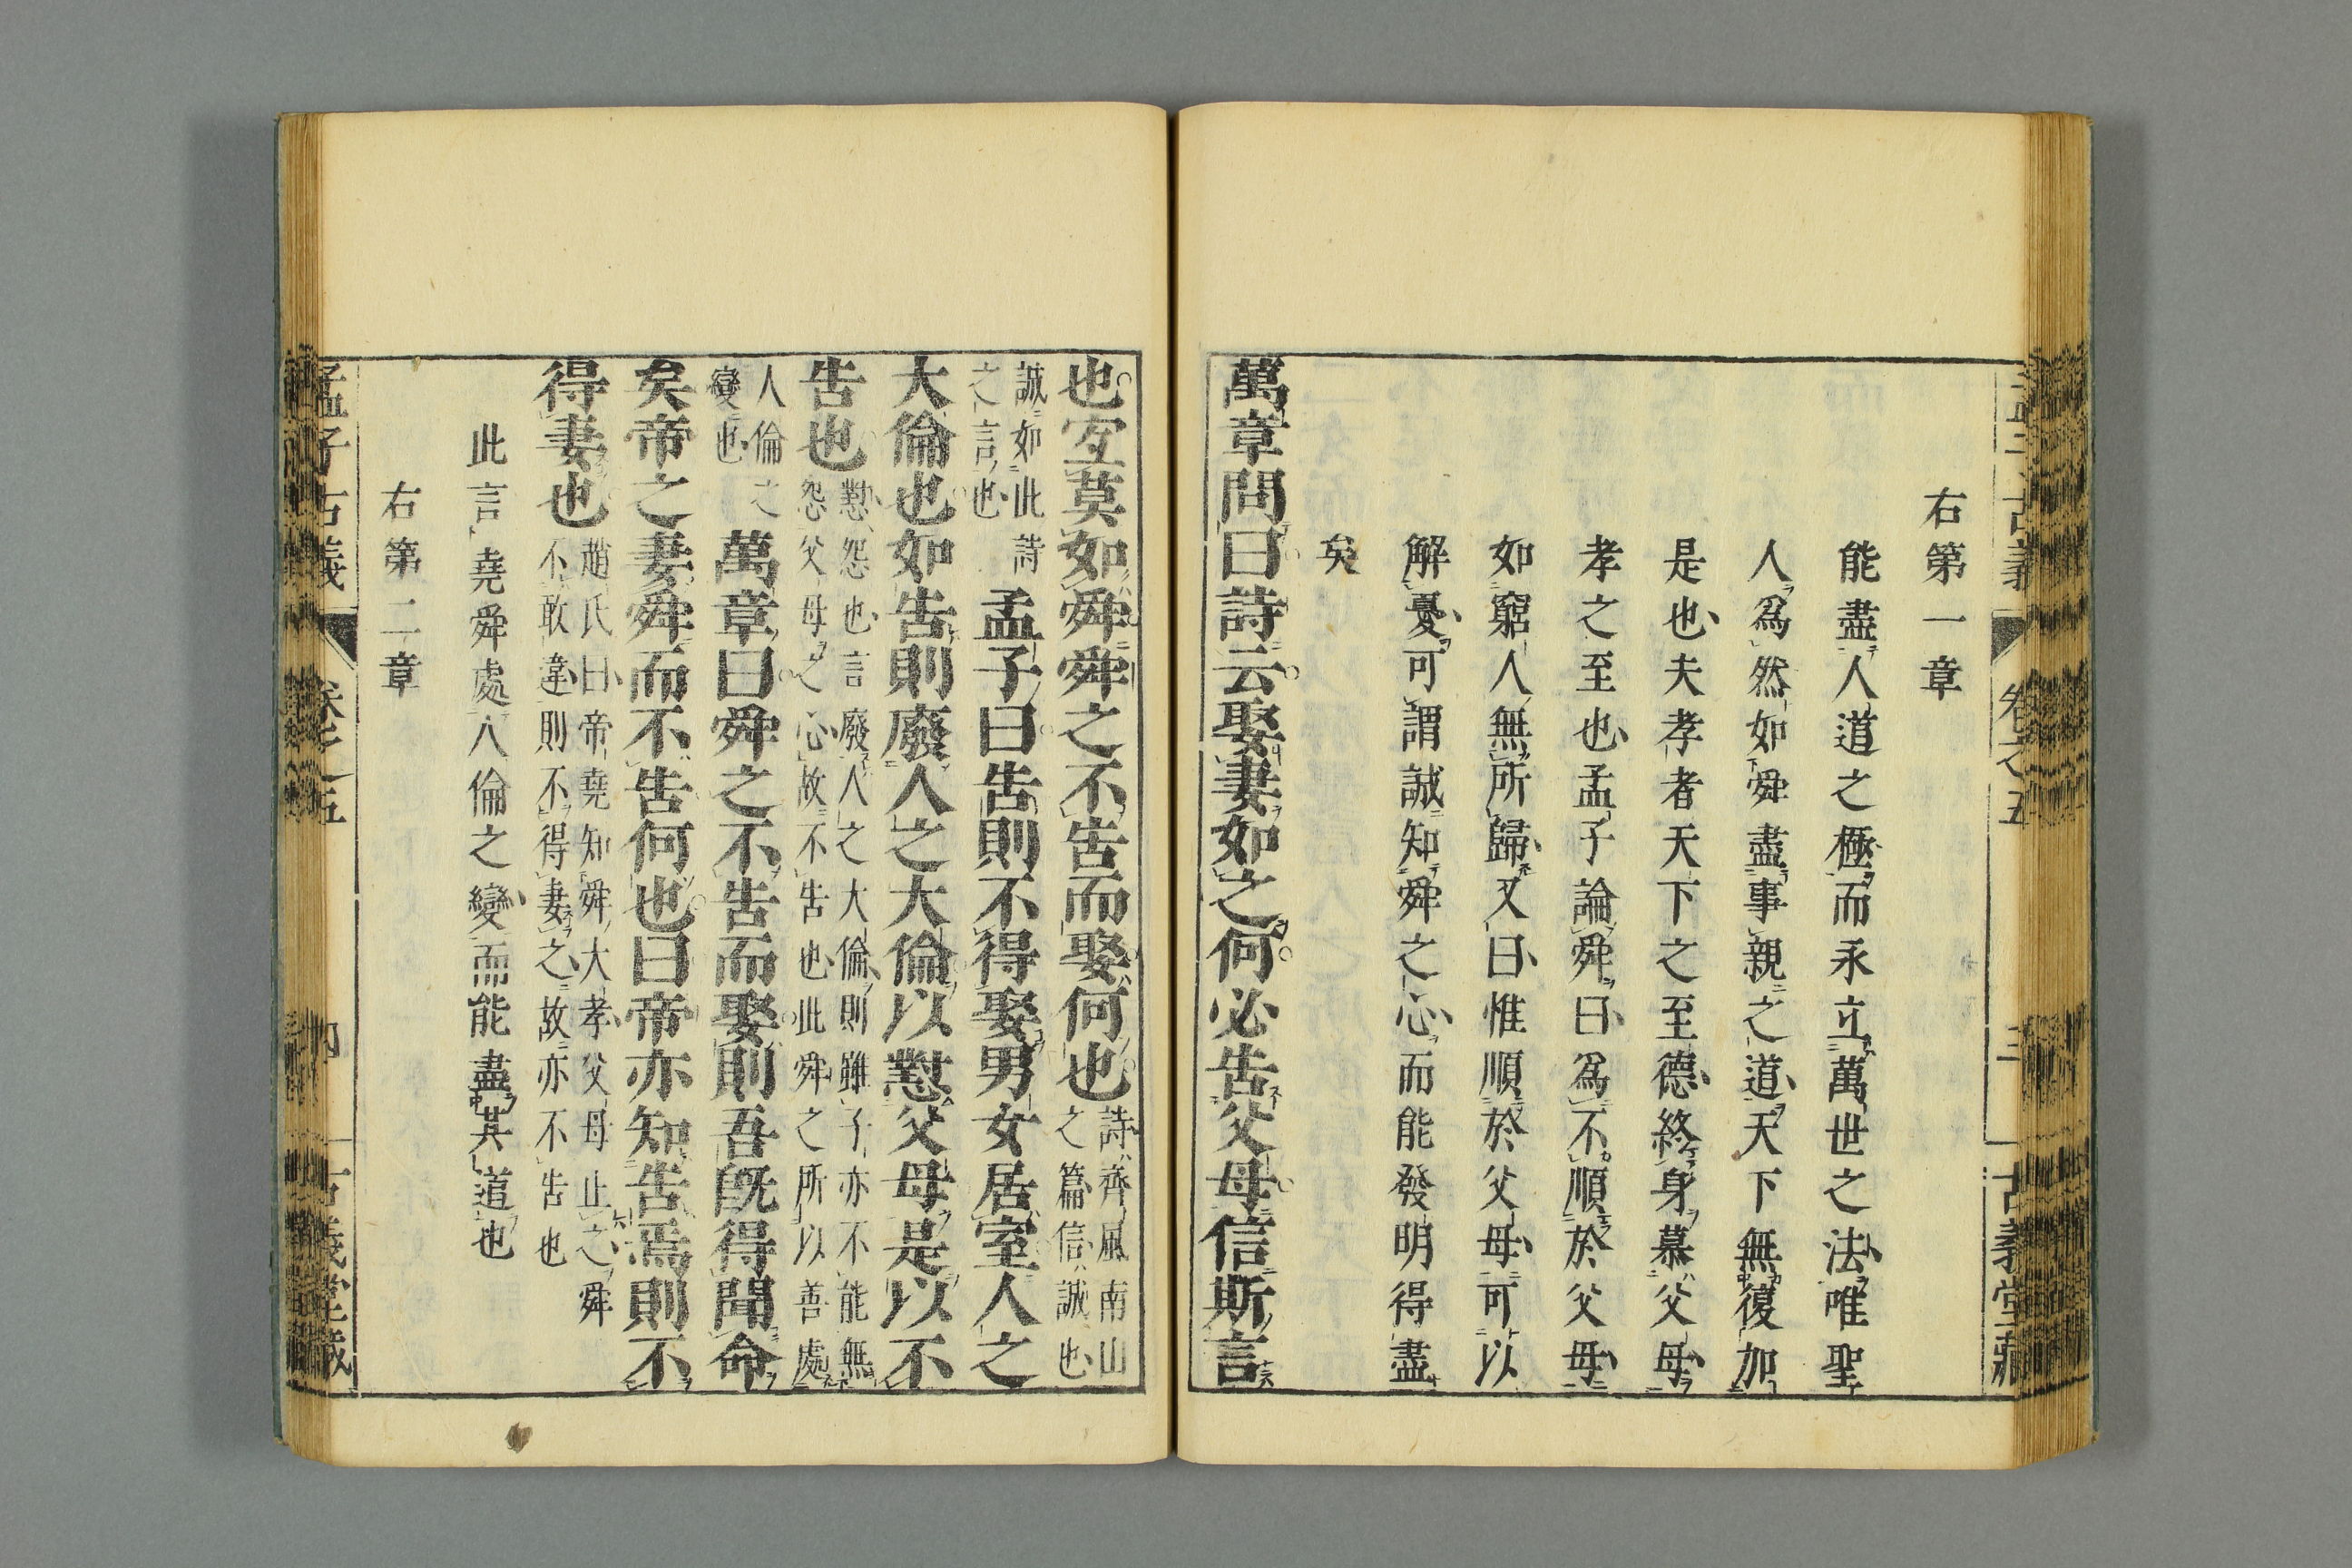 右第一章
能盡人道之極而永立萬世之法唯聖
人爲然如舜盡事親之道天下無復加
是也夫孝者天下之至德終身慕父母
孝之至也孟子論舜曰爲不順於父母
如窮人無所歸又曰惟順於父母可以
解憂可謂誠知舜之心而能發明得盡
矣
萬章問曰詩云娶妻如之何必告父母信斯言
也宜莫如舜舜之不告而娶何也
詩齊風南山
之篇信誠也
誠如此詩
之言也
孟子曰告則不得娶男女居室人之
大倫也如告則廢人之大倫以懟父母是以不
告也
懟怨也言廢人之大倫則雖子亦不能無
怨父母之心故不告也此舜之所以善處
人倫之
變也
萬章曰舜之不告而娶則吾既得聞命
矣帝之妻舜而不告何也曰帝亦知告焉則不
得妻也
趙氏曰帝堯知舜大孝父母止之舜
不敢違則不得妻之故亦不告也
此言堯舜處人倫之變而能盡其道也
右第二章
孟子古義 卷之五 四 古義堂藏